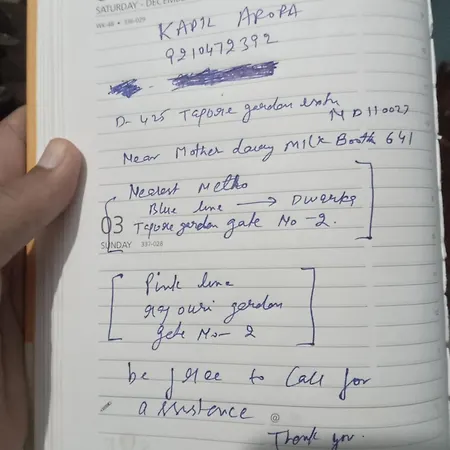 SATURDAY - DECEM
WK-48 • 336-029
KAPIL ARORA
9210472392
D-425 Tagore garden extn
N D 110027
Near Mother dairy Milk Booth 641
Nearest Metro
Blue line → Dwarka
03 Tagore garden gate No - 2.
SUNDAY 337-028
Pink line
Rajouri garden
gate No - 2
be free to Call for
assistence
@
Thank you.